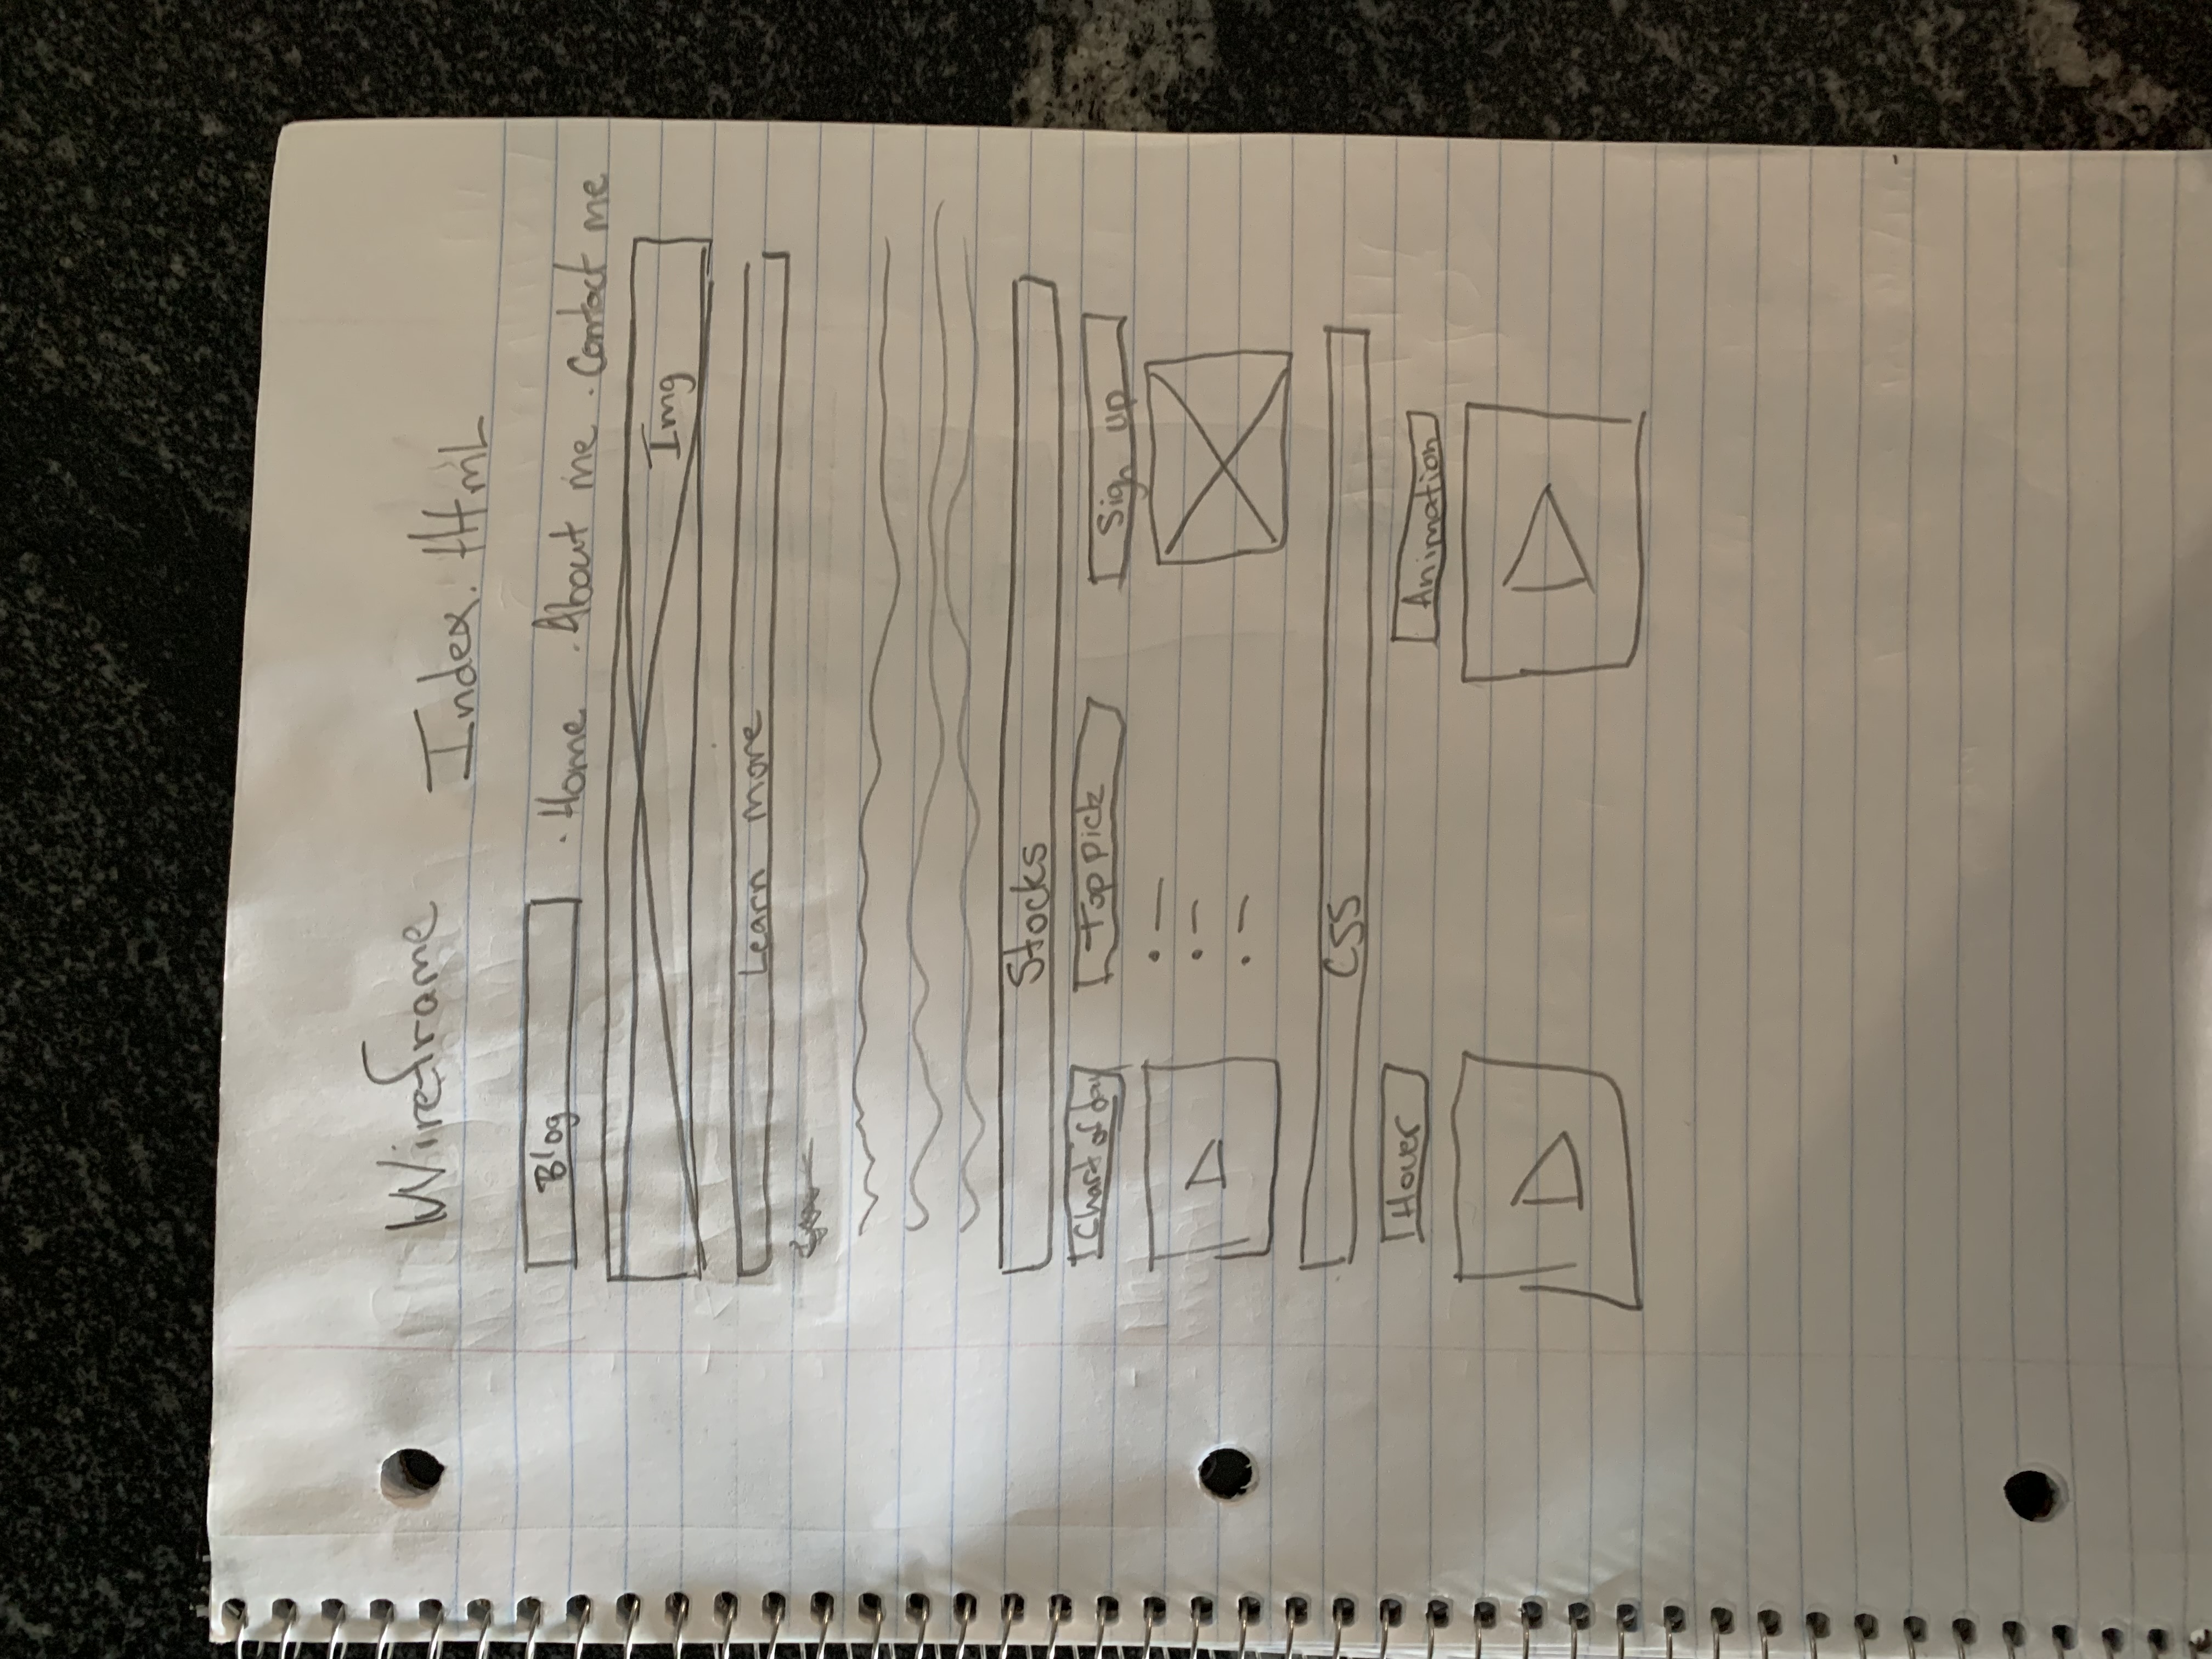 Wireframe Index.HtmL
Blog · Home · About me · Contact me
Img
Learn more
Stocks
Chart of day Top pick Sign up
CSS
Hover Animation